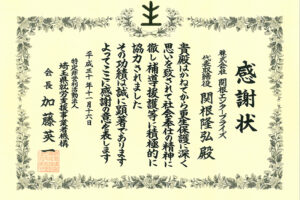 感謝状
株式会社 関根エンタープライズ
代表取締役 関根隆弘 殿
貴殿はかねてから更生保護に深く
思いを致されて社会奉仕の精神に
徹し補導援護等に積極的に
協力されました
その功績は誠に顕著であります
よってここに感謝の意を表します
平成三十年十一月十六日
特定非営利活動法人
埼玉県就労支援事業者機構
会長 加藤英一